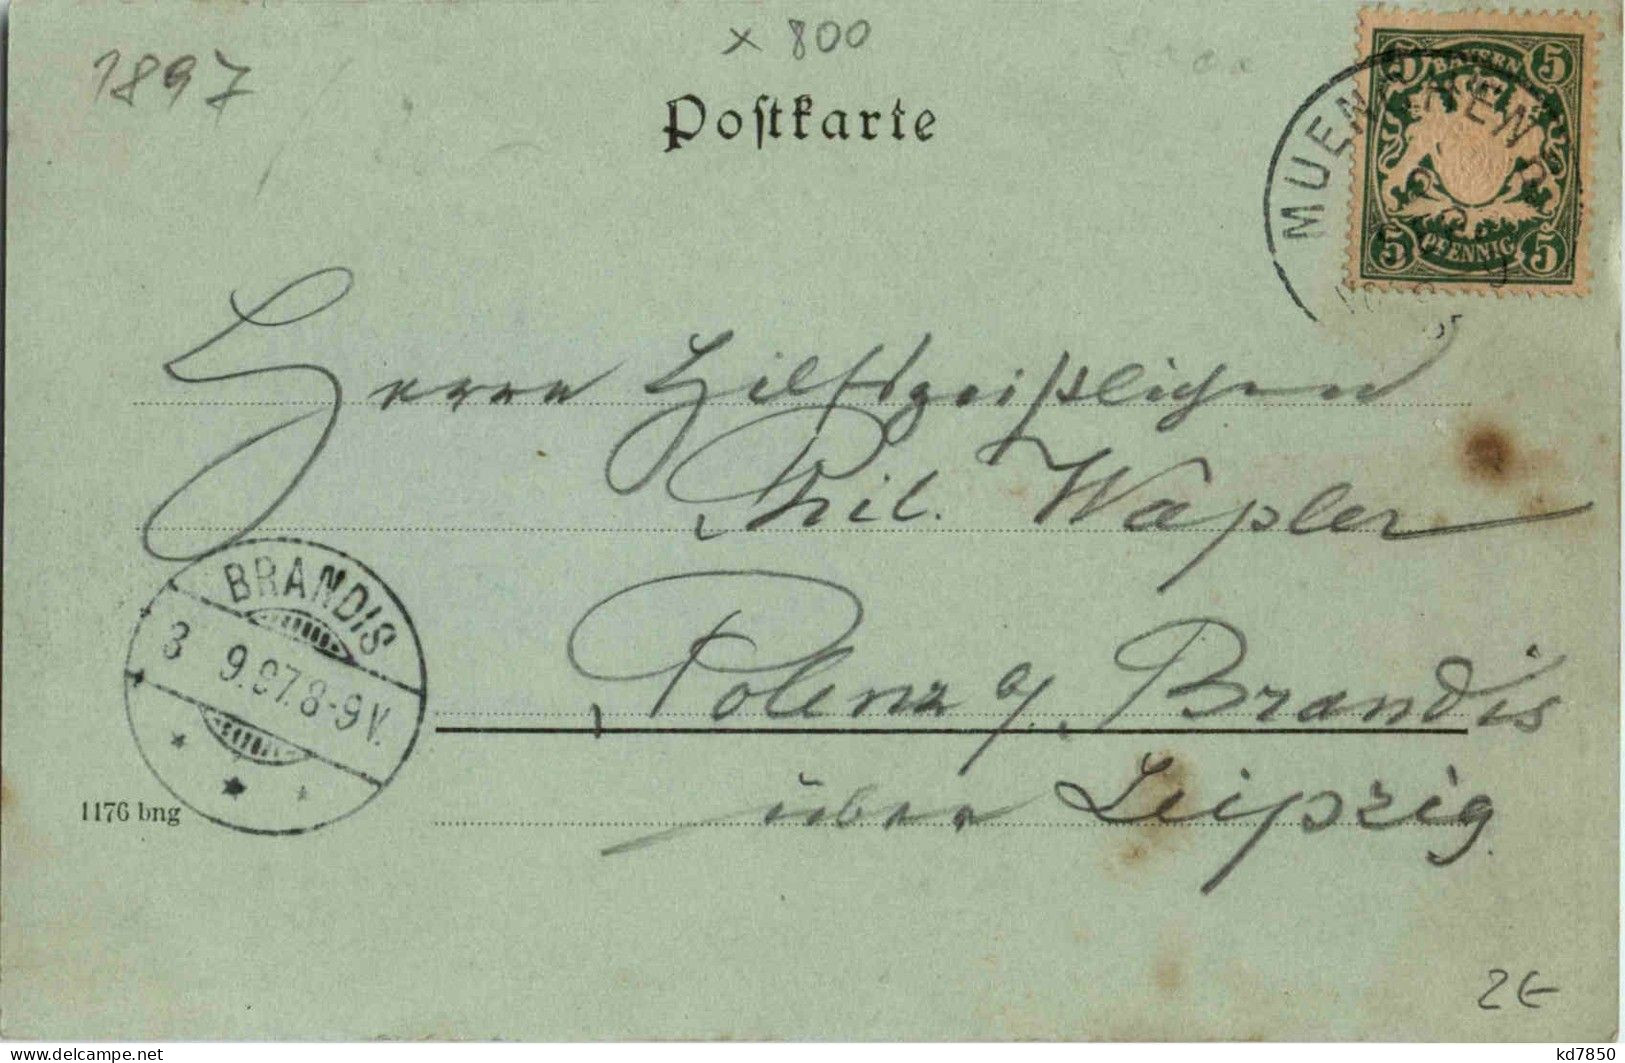 x 800
1897
Postkarte
BAYERN
5 5
PFENNIG
5 5
MUENCHEN
Herrn Hilfsgeistlichen
Phil. Wapler
Polenz a/ Brandis
über Leipzig.
BRANDIS
3 9.97.8-9V.
1176 bng
2€
kd7850